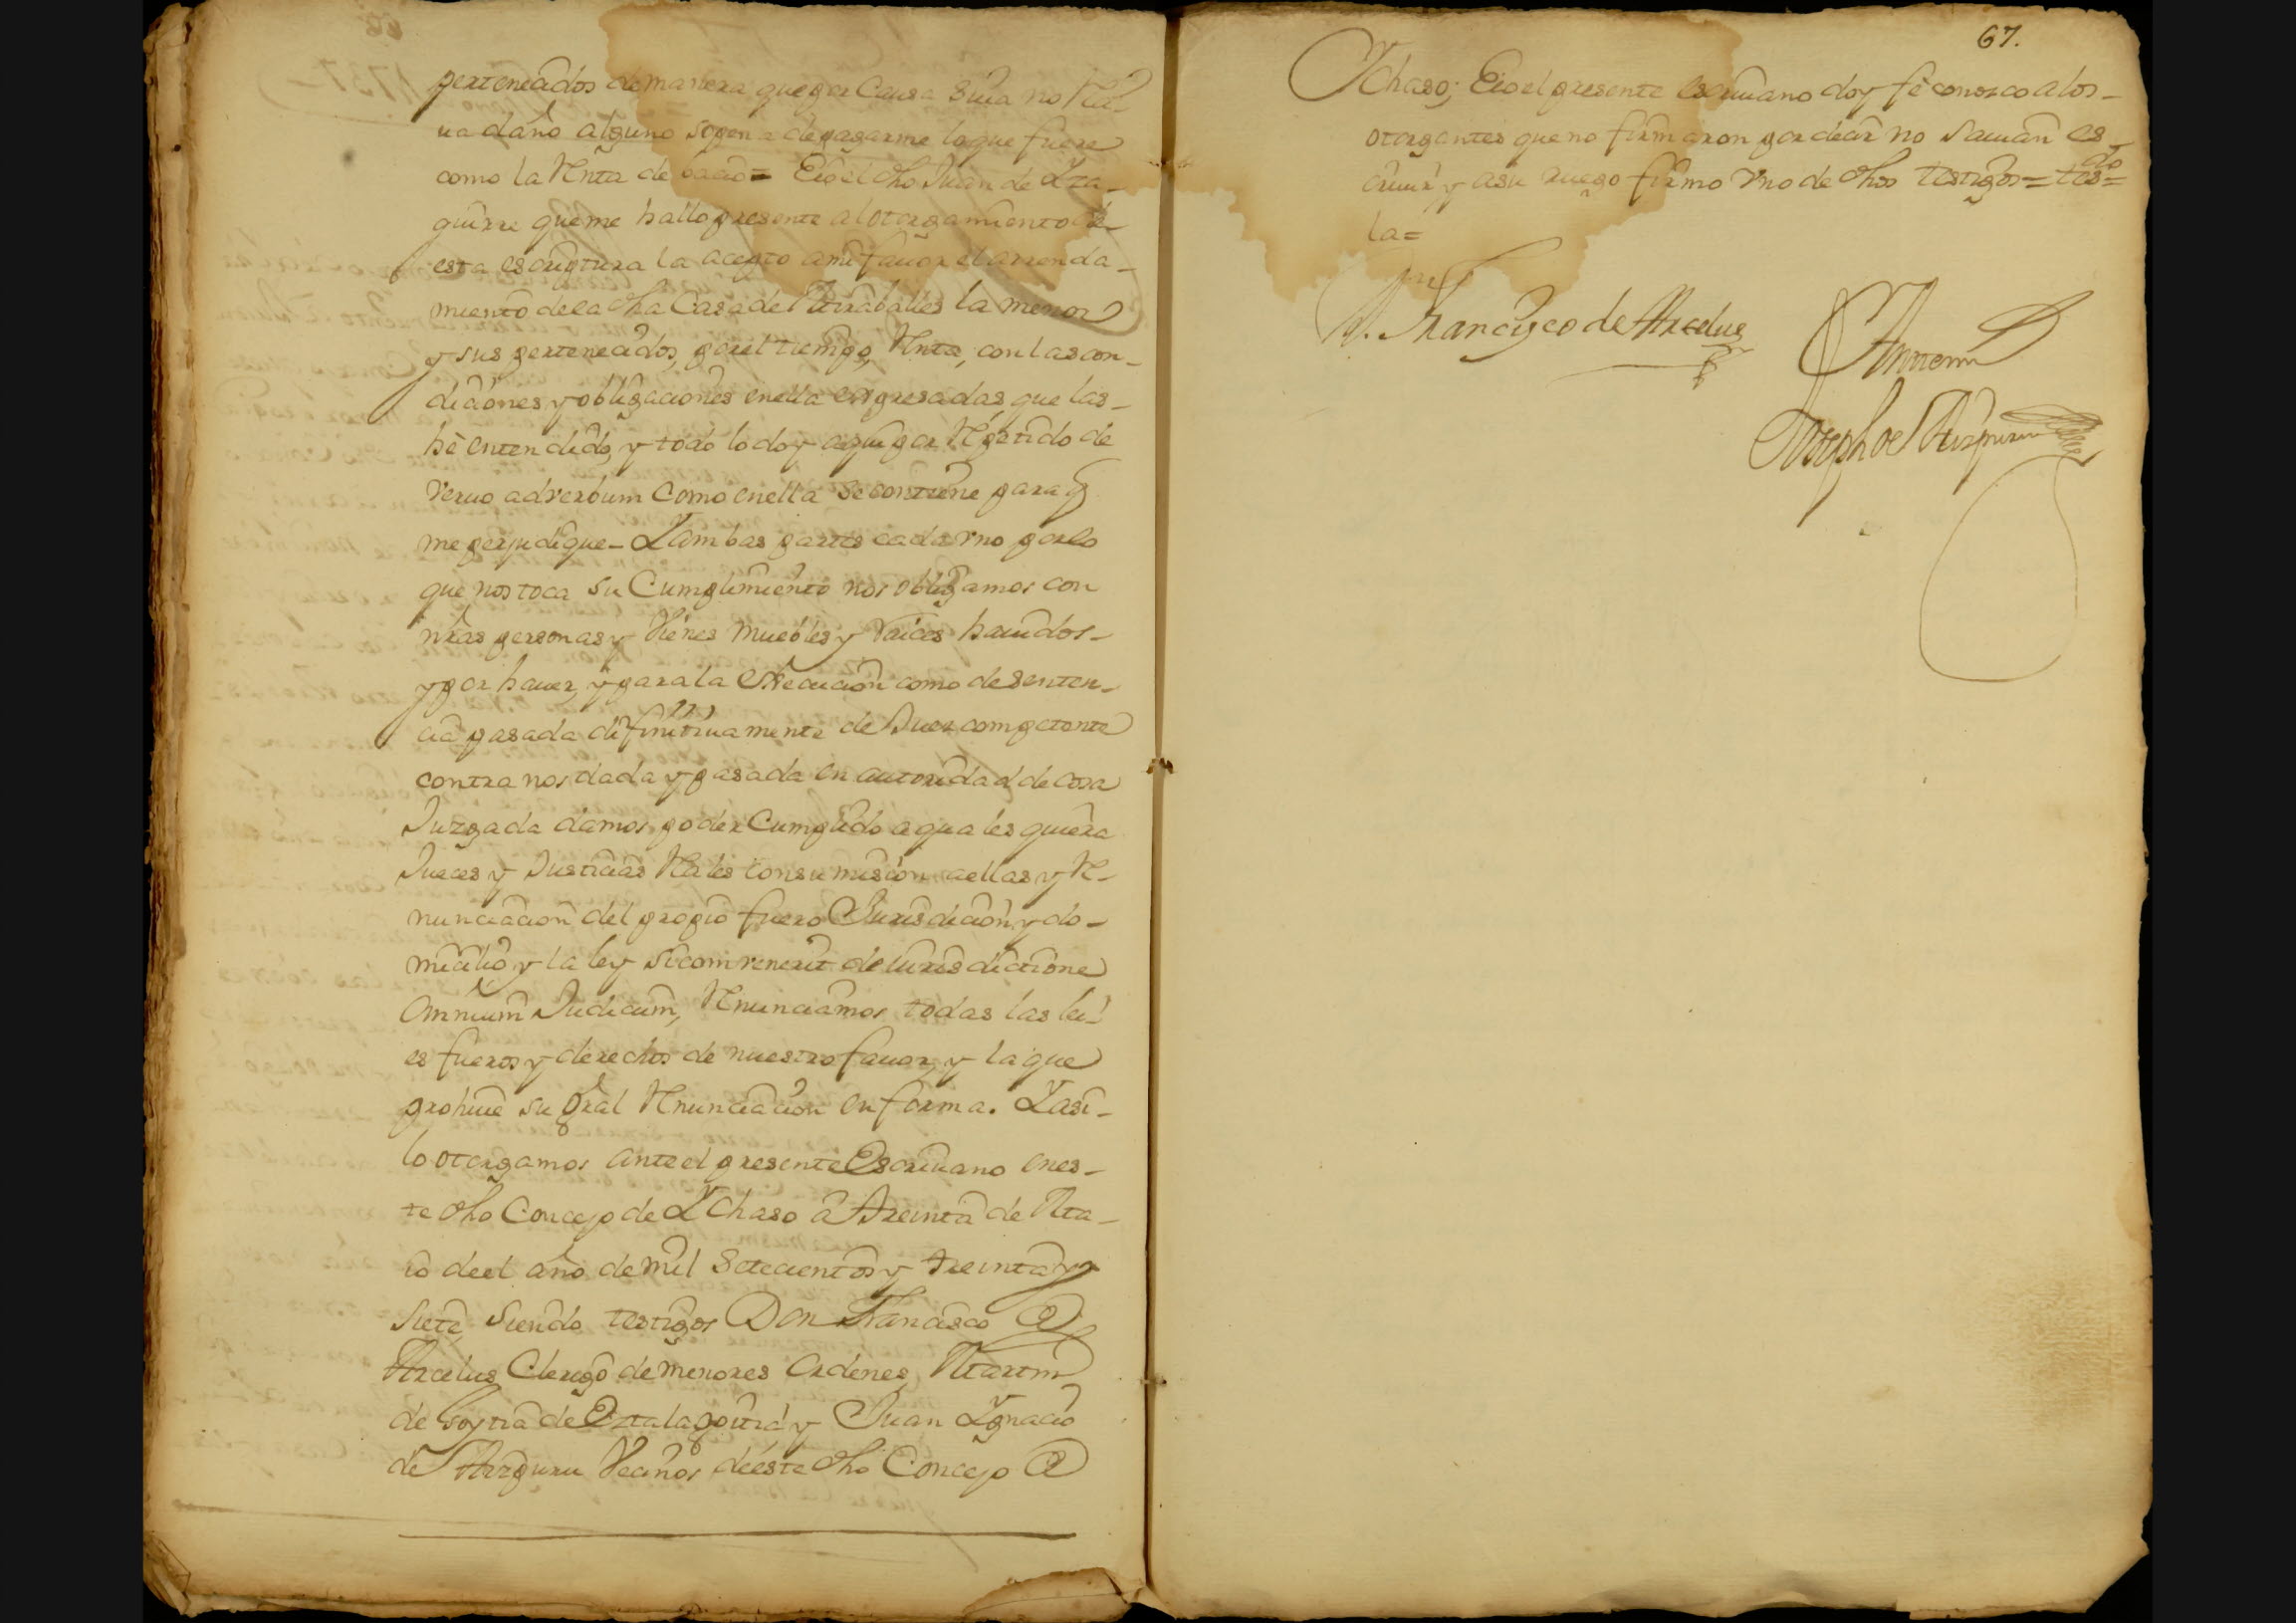 pertenecidos de manera que por Causa suia no Rez-
iua daño alguno so pena de pagarme lo que fuere
como la Renta de bacio = E io el dho Juan de Yza-
guirre que me hallo presente al otorgamiento de
esta escriptura la acepto a mi fauor el arrenda-
miento de la dha Casa de la menor
y sus pertenecidos, por el tiempo, Renta, con las con-
diciones y obligaciones en ella expresadas que las-
hè entendido, y todo lo doy aqui por Repetido de
veruo adverbum Como en ella se contiene para q
me perjudique - Y ambas partes cada vno por lo
que nos toca su Cumplimiento nos obligamos con
nras personas y Vienes muebles y raices hauidos-
y por hauer, y para la Execucion como de senten-
cia pasada difinitiuamente de Juez competente
contra nos dada y pasada en autoridad de cosa
Juzgada damos poder Cumplido a quales quiera
Jueces y Justicias Rales con sumision a ellas y Re-
nunciacion del propio fuero Jurisdicion y do-
micilio y la ley si combenerit de Iurisdictione
Omnium Judicum, Renunciamos todas las lei-
es fueros y derechos de nuestro fauor, y la que
prohiue su gral Renunciacion en forma. Y asi-
lo otorgamos ante el presente Escriuano en es-
te dho Concejo de Ychaso â treinta de Ma-
io de el año de mil setecientos y treinta y
siete, siendo testigos Don Francisco de
Arcelus, Clerigo de menores Ordenes, Martin
de Goytia de y Juan Ygnacio
de Aizpuru Vecinos de este dho Concejo de
67.
Ychaso; E io el presente escriuano doy fè conozco a los-
otorgantes que no firmaron por decir no sauian es-
criuir y a su ruego firmo vno de dhos testigos = tes=
do
la=
Francisco de Arcelus
Ante mi
Joseph de Aizpuru